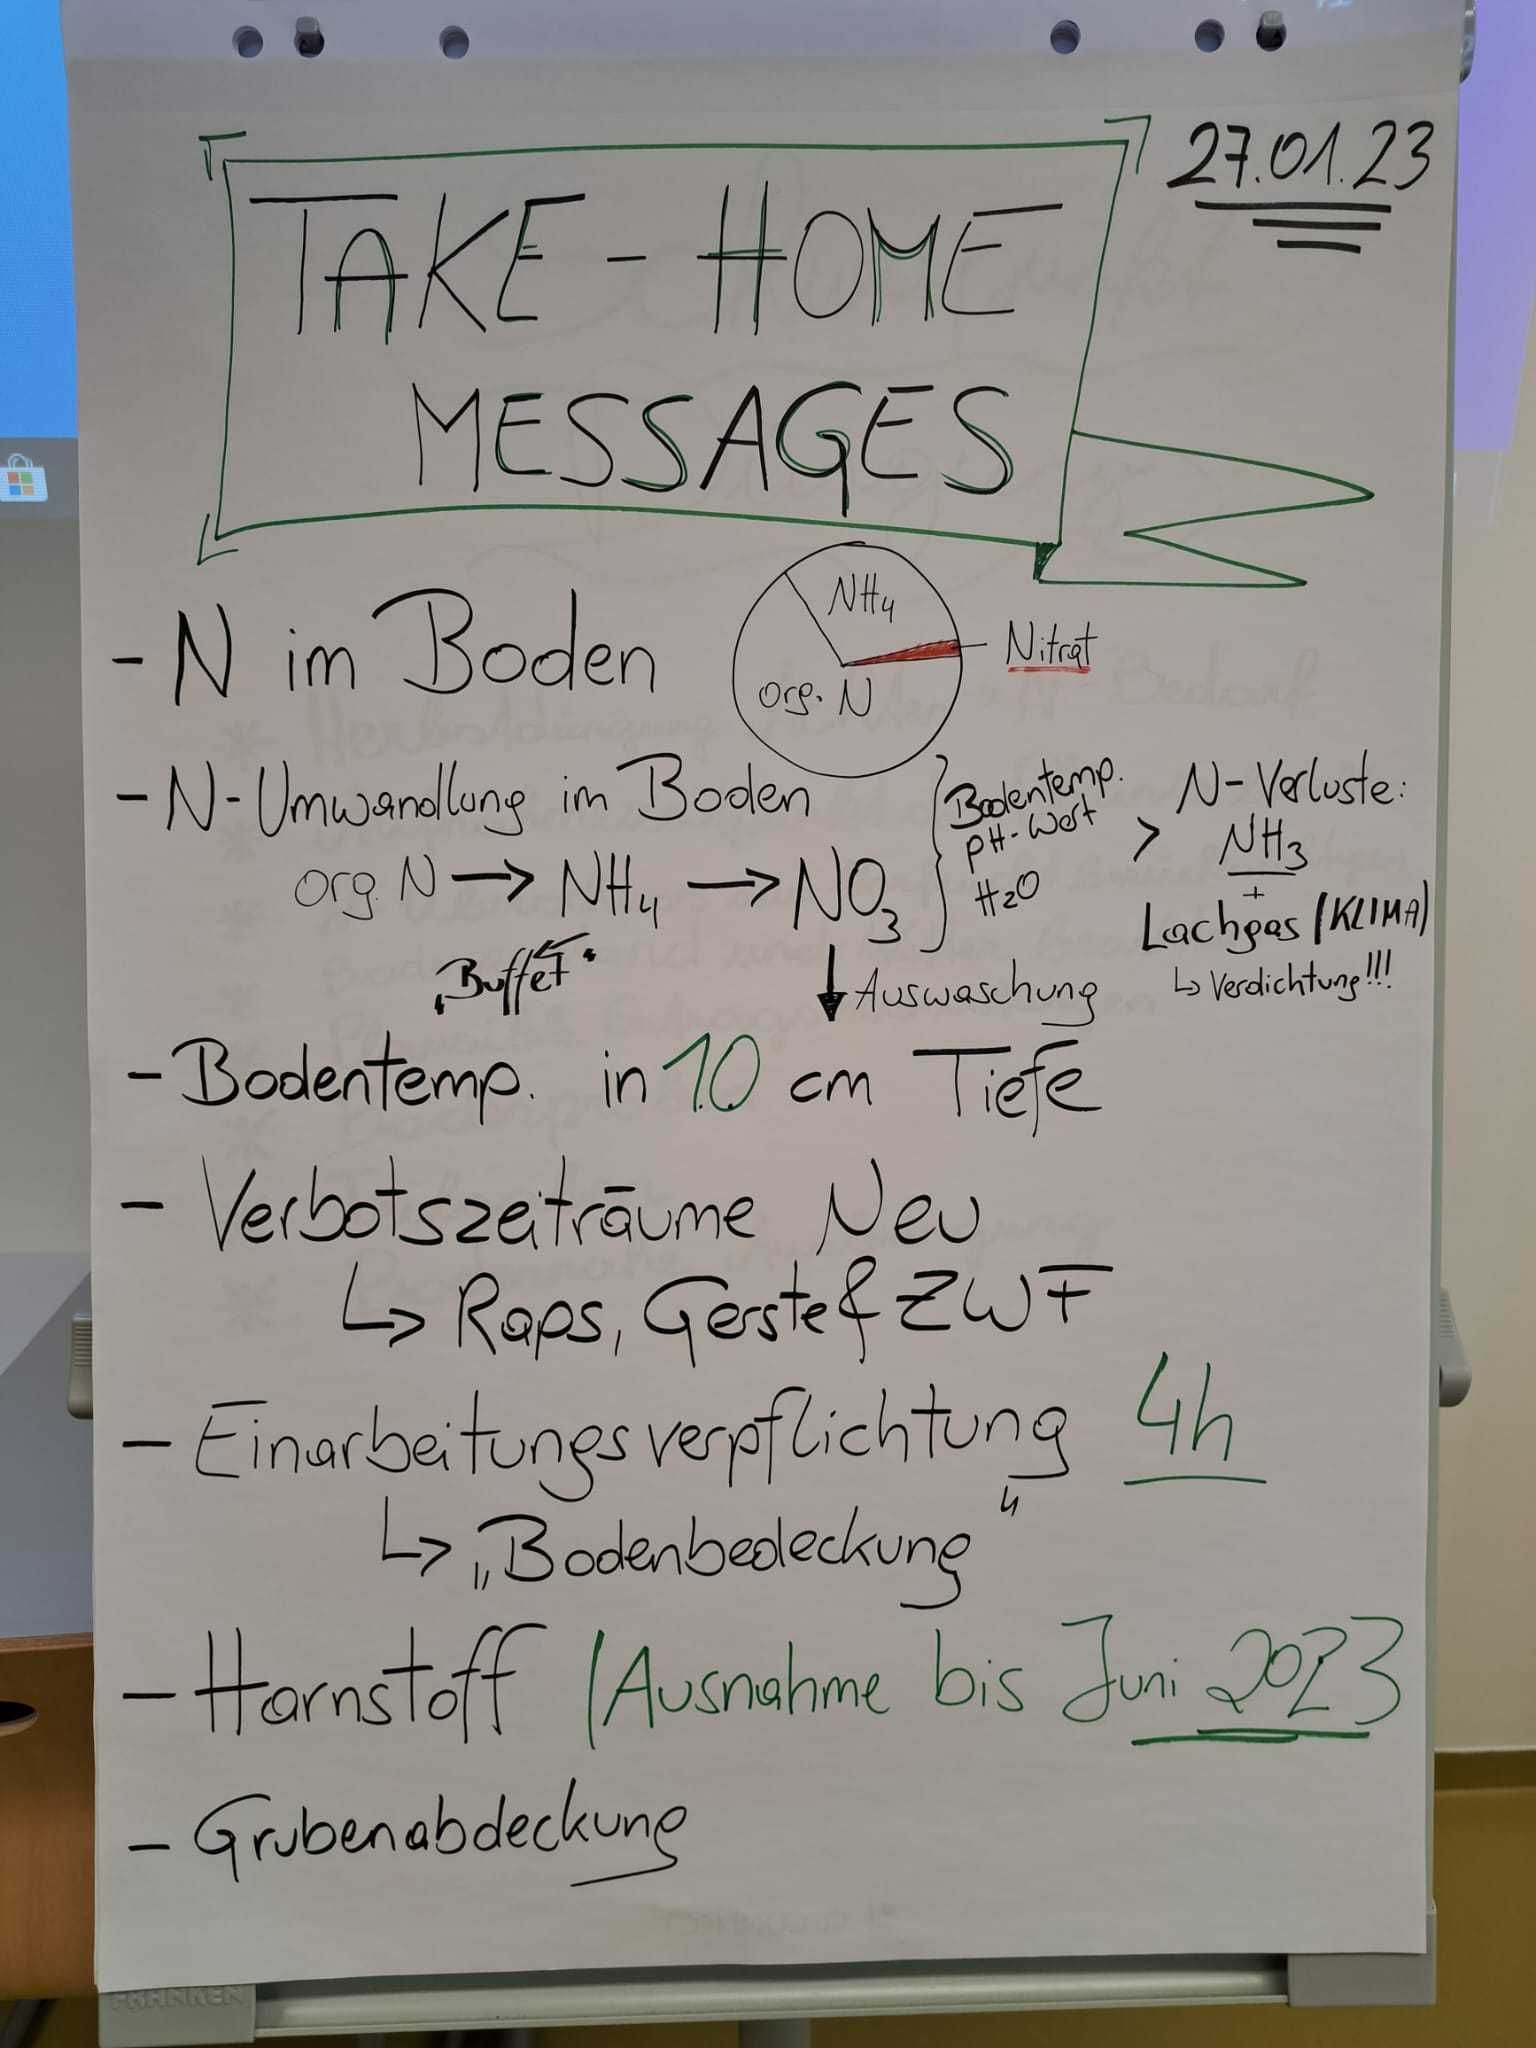 27.01.23
TAKE-HOME
MESSAGES
- N im Boden
NH4
Nitrat
org. N
- N-Umwandlung im Boden
org. N → NH4 → NO3
"Buffet"
Auswaschung
Bodentemp.
pH-Wert
H2O
> N-Verluste:
NH3
+
Lachgas (KLIMA)
↳ Verdichtung!!!
- Bodentemp. in 10 cm Tiefe
- Verbotszeiträume Neu
↳ Raps, Gerste & ZWF
- Einarbeitungsverpflichtung 4h
↳ „Bodenbedeckung"
- Harnstoff / Ausnahme bis Juni 2023
- Grubenabdeckung
FRANKEN